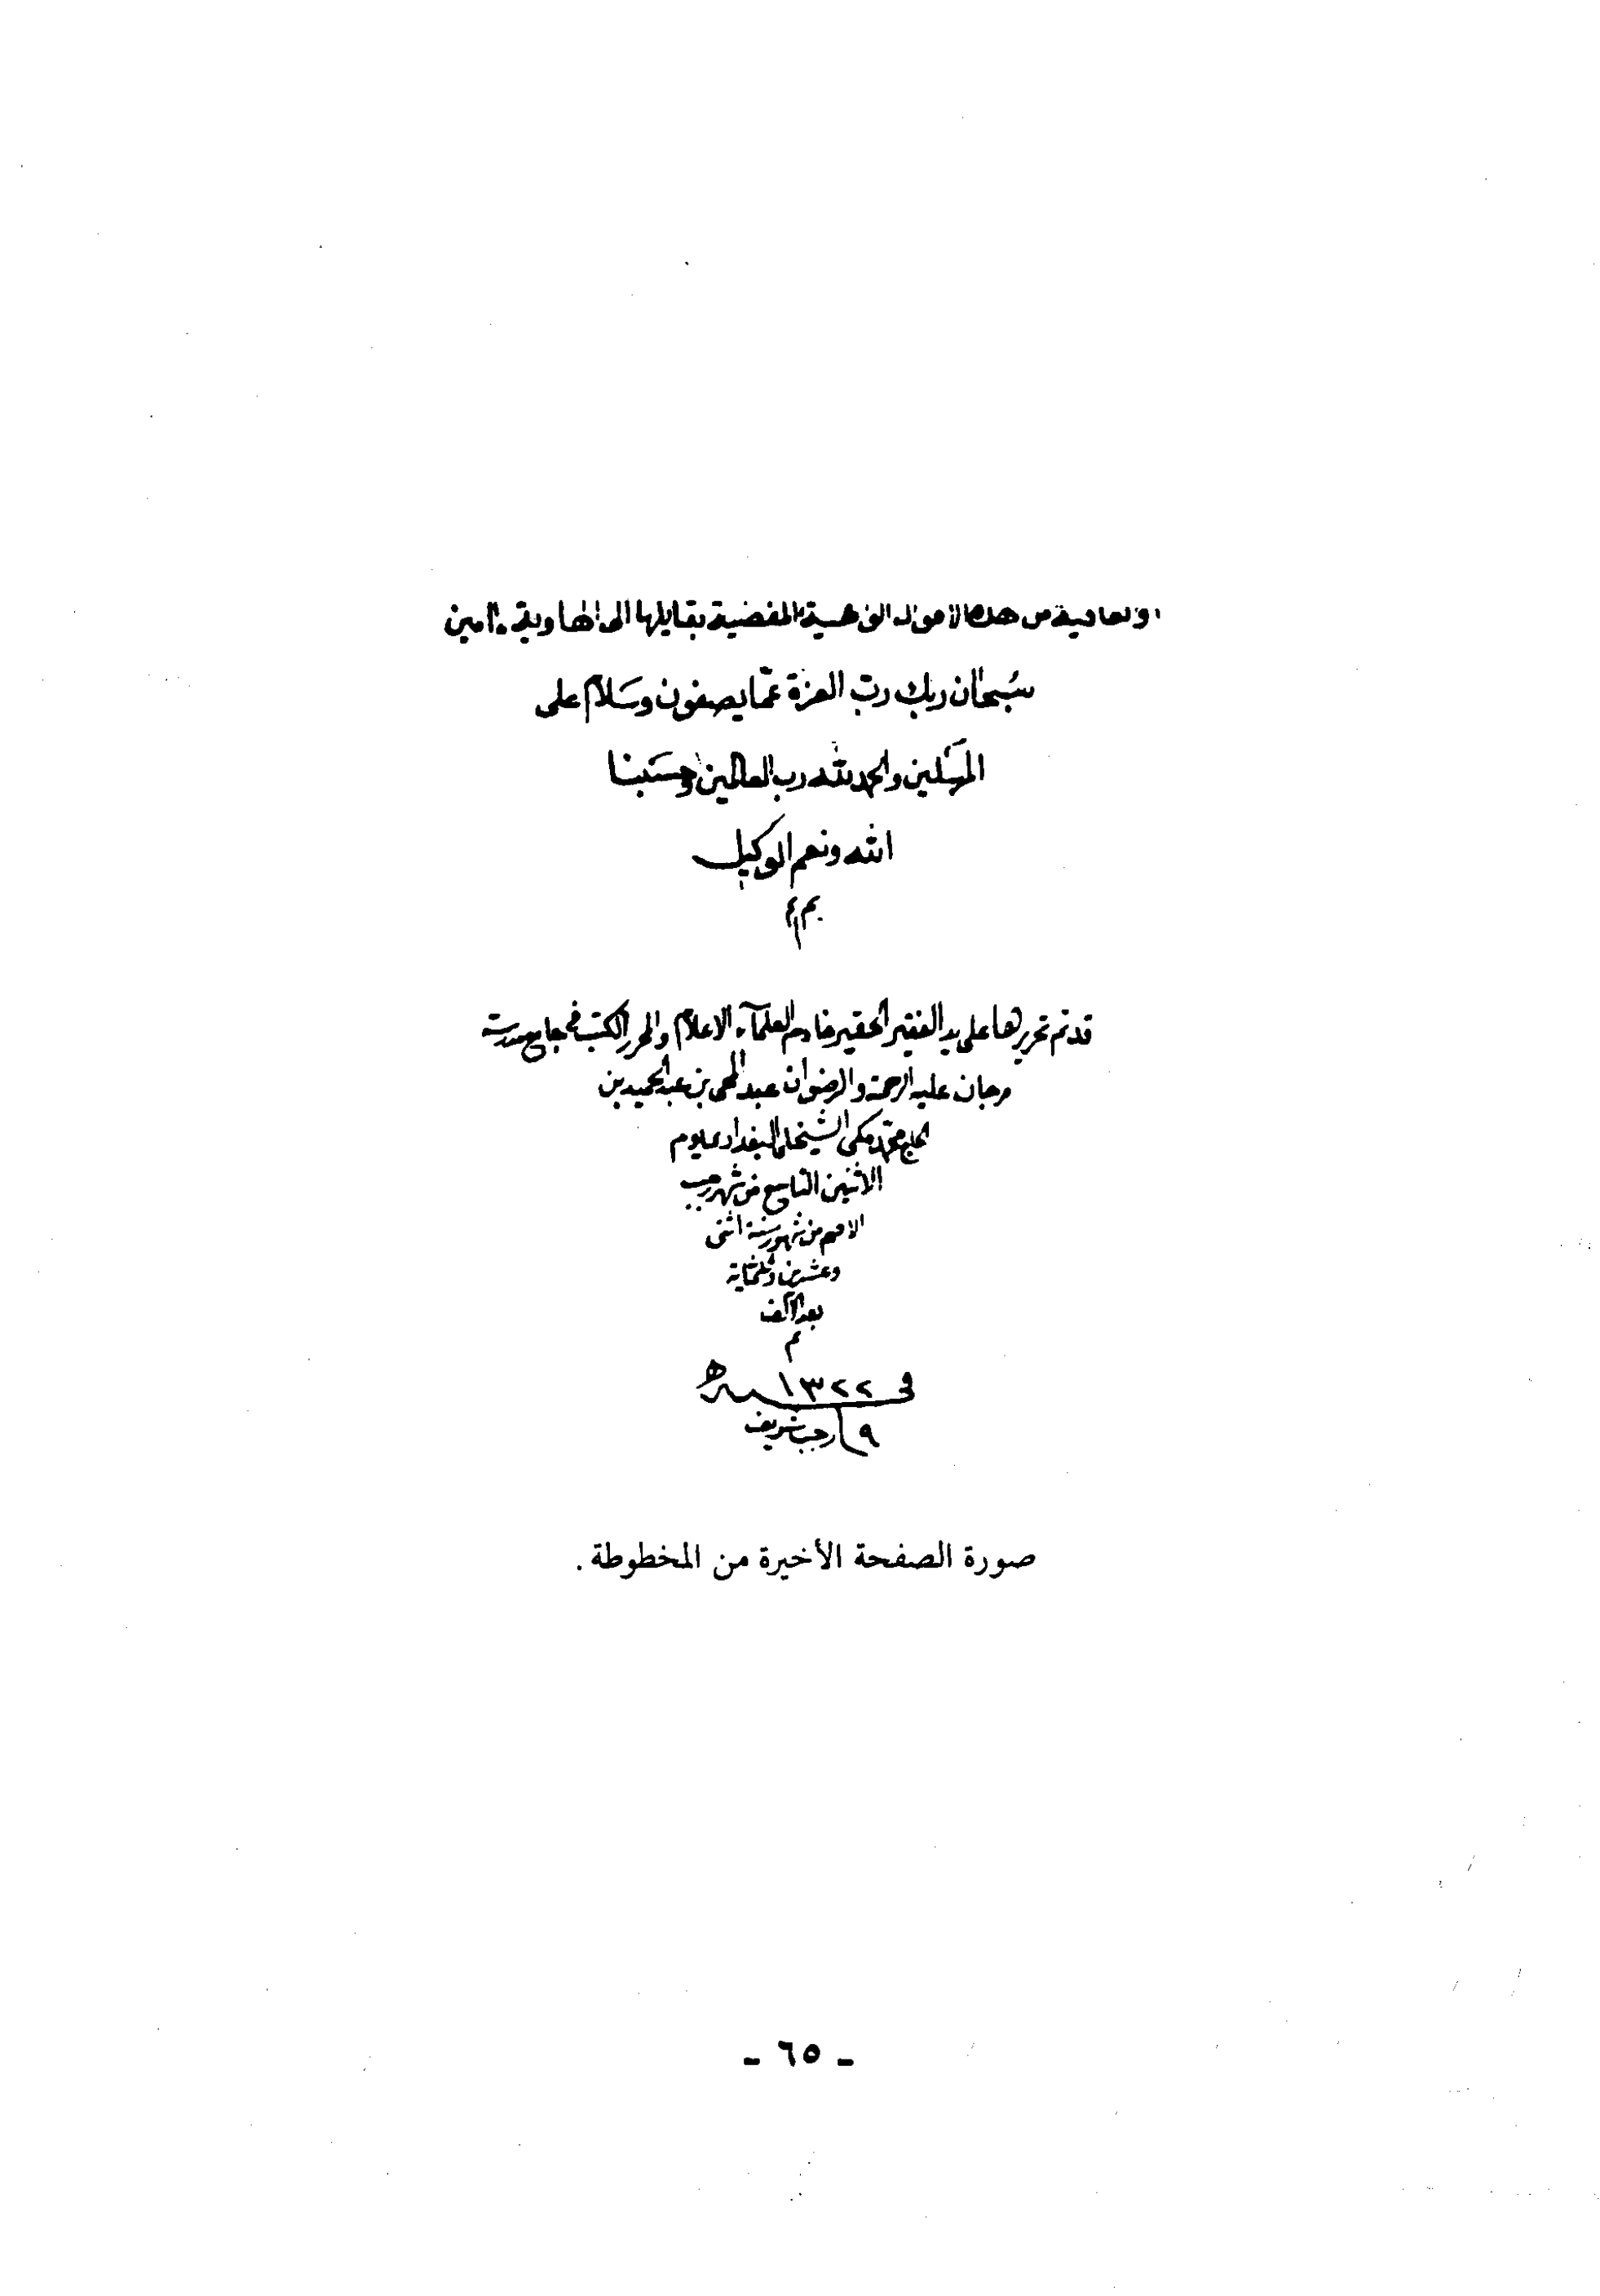 من هذه الاقوال المفضية بقايلها الى الهاوية . امين
سُبحان ربك رب العزة عمّا يصفون وسَلام على
المرسَلين والحمد لله رب العالمين وحسَبنا
الله ونعم الوكيل
قد تم تحريرها على يد الفقير الحقير خادم العلمآء الاعلام والمحرر الكتب في جامع مدرسة
مرجان عليه الرحمة والرضوان عبد المحى بن عبد الحميد بن
الحاج محمد مكى الشيخلى البغدادى يوم
الاثنين التاسع من شهر رجب
الاصم من شهور سنة اثنى
وعشرين وثلثماية
بعد الالف
م
في ١٣٢٢ سنه ه
٩ رجب شريف
صورة الصفحة الأخيرة من المخطوطة .
- ٦٥ -